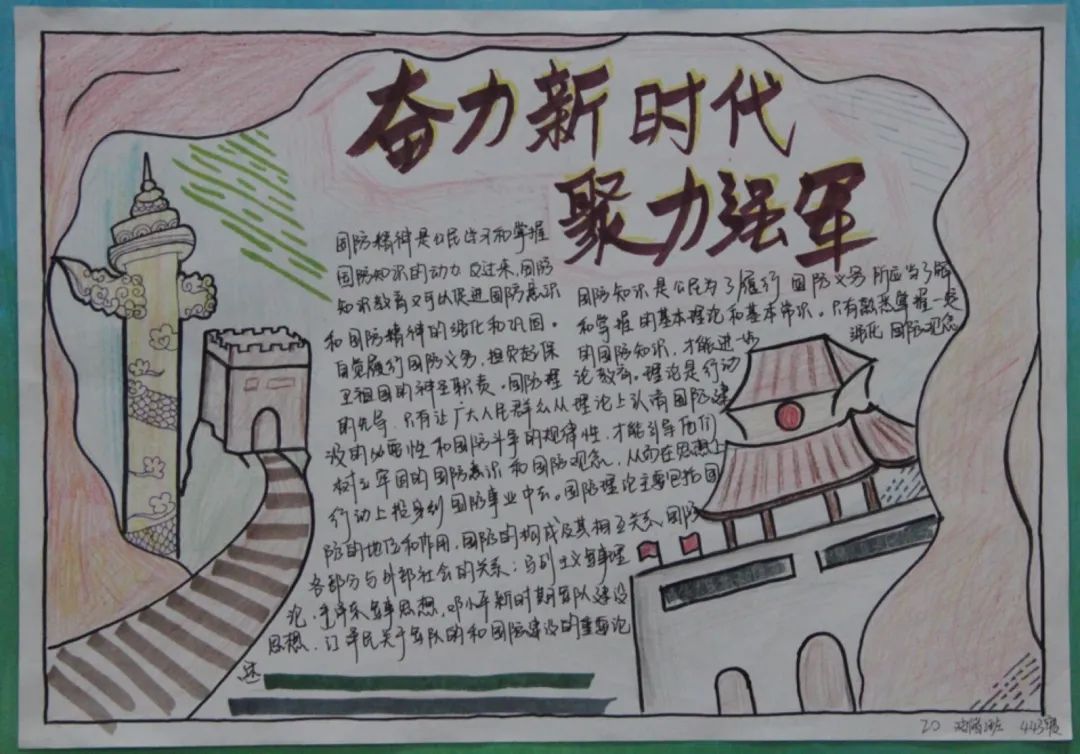 奋力新时代
聚力强军
国防精神是公民学习和掌握
国防知识的动力 反过来,国防
知识教育又可以促进国防意识
和国防精神的强化和巩固。
自觉履行国防义务,担负起保
卫祖国的神圣职责。国防理
国防知识是公民为了履行 国防义务所应当了解
和掌握的基本理论和基本常识。只有熟悉掌握一定
的国防知识,才能进一步 强化 国防观念
论教育。理论是行动
的先导,只有让广大人民群众从理论上认清国防建
设的必要性和国防斗争的规律性,才能引导他们
树立牢固的国防意识和国防观念,从而在思想上
行动上投身到国防事业中去。国防理论主要包括国
防的地位和作用,国防的构成及其相互关系、国防
各部分与外部社会的关系;马列主义军事理
论,毛泽东军事思想,邓小平新时期军队建设
思想,江泽民关于军队的和国防建设的重要论
述
20 443寝